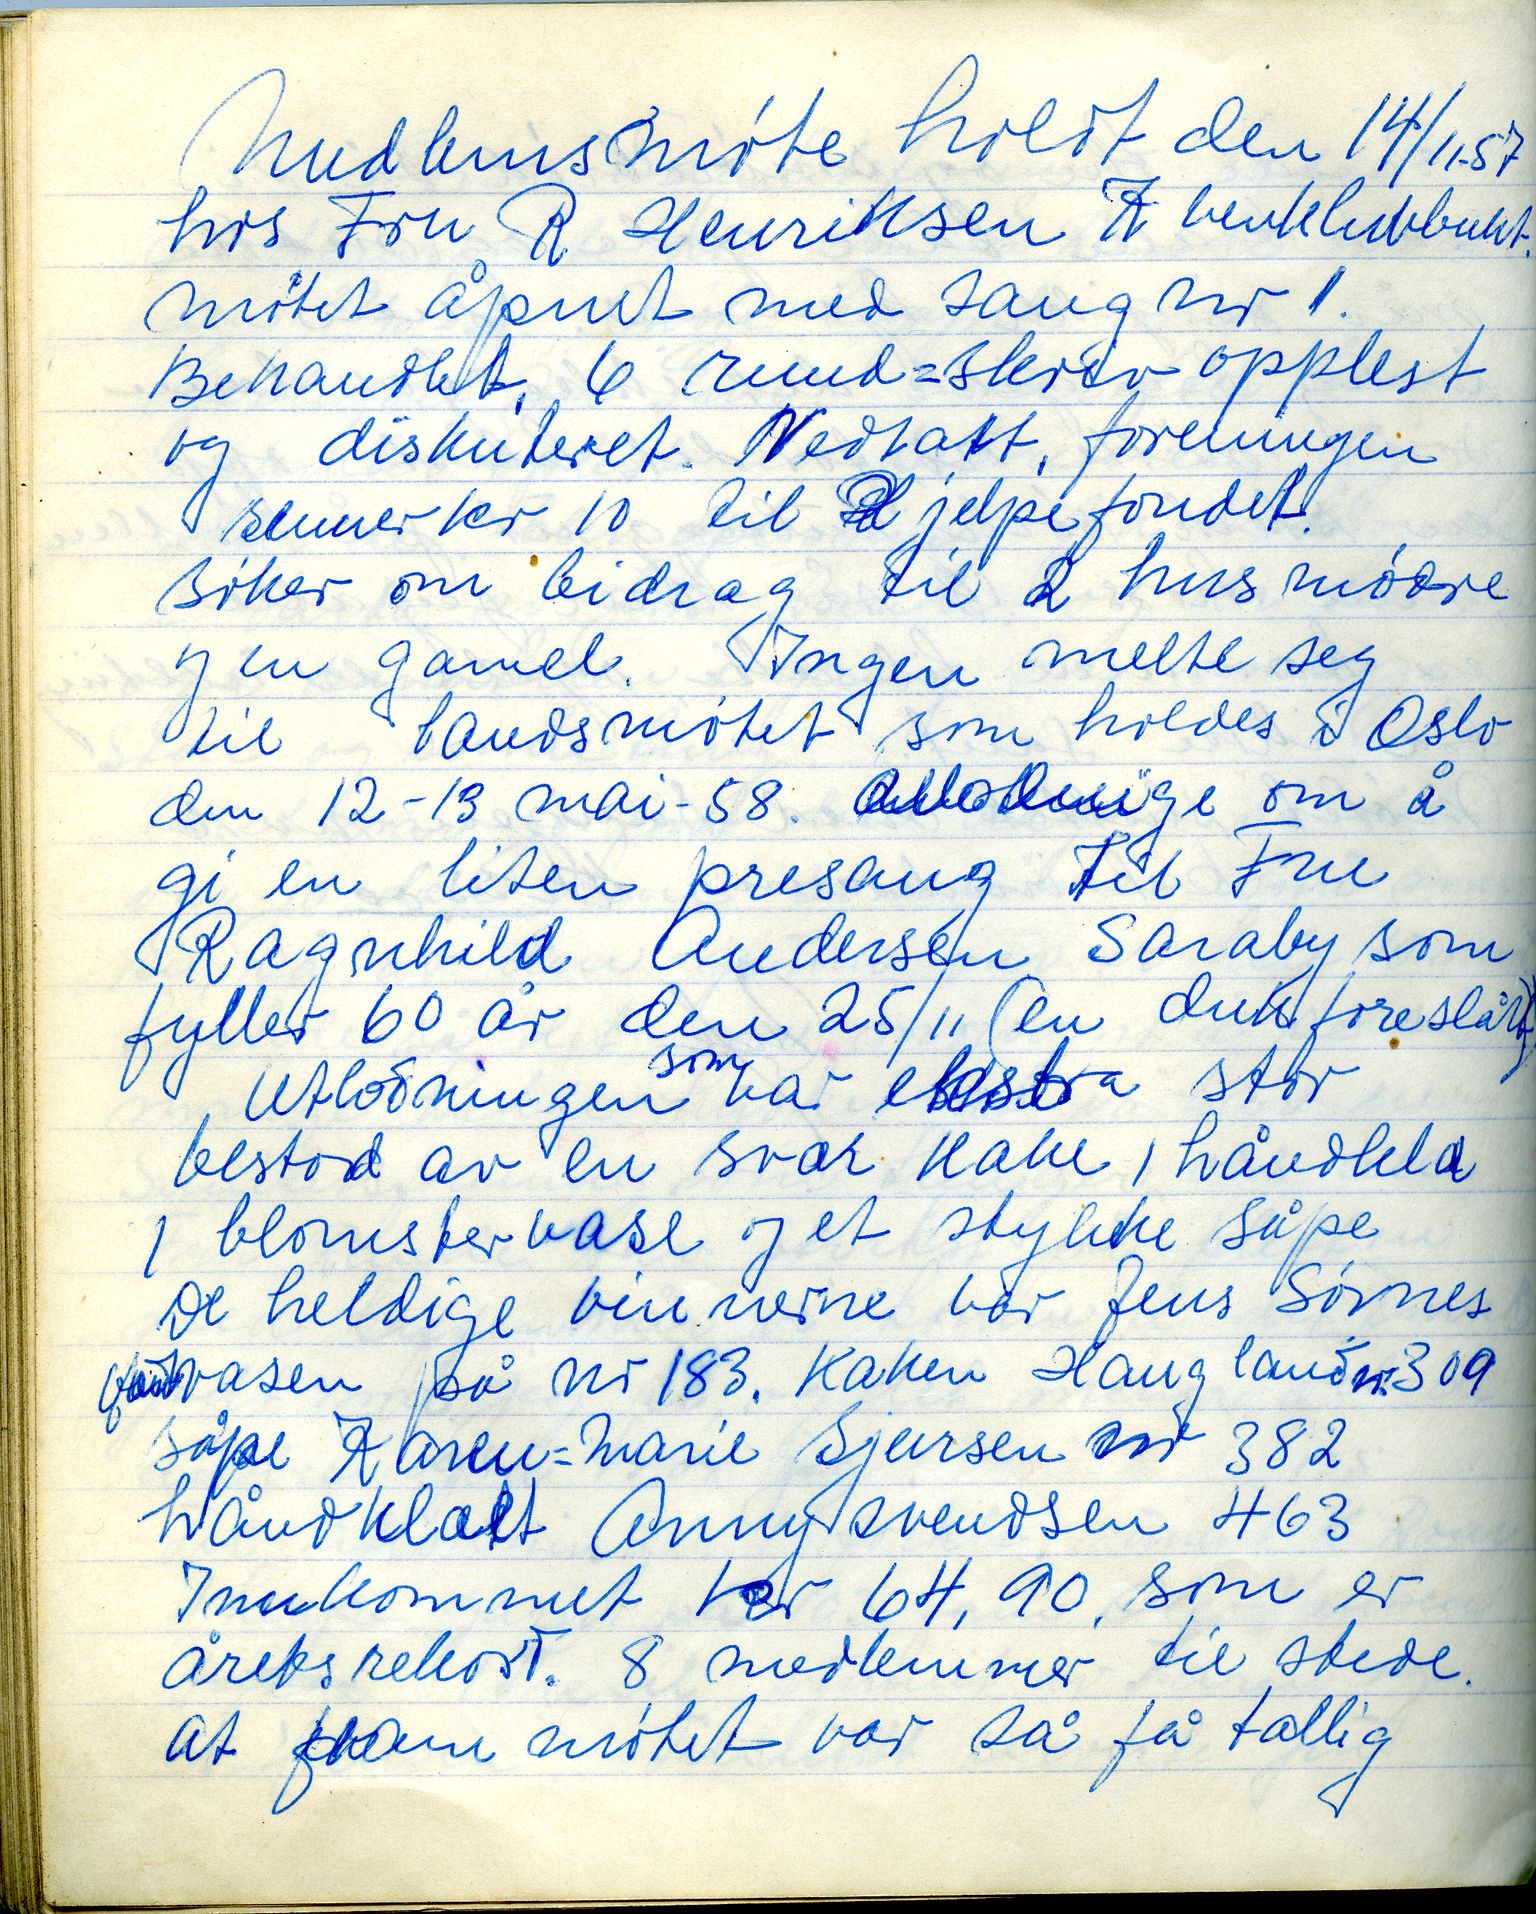 Medlemsmøte holdt den 14/11-57
hos Fru R Henriksen
møtet åpnet med sang nr 1.
Behandlet, 6 rund=skriv opplest
og diskuteret. Vedtatt, foreningen
senner kr 10 til Hjelpefondet.
søker om bidrag til 2 husmødre
og en gamel. Ingen melte seg
til landsmøtet som holdes i Oslo
den 12-13 mai-58. om å
gi en liten presang til Fru
Ragnhild Andersen Saraby som
fyller 60 år den 25/11 (en duk foreslått)
Utlodningen som var ekstra stor
bestod av en svær kake 1 håndkla
1 blomstervase og et stykke såpe
De heldige vinnerne var Jens Sørnes
vasen på nr 183. Kaken Haugland nr 309
såpe Karen=Marie Sjursen nr 382
håndklætt Anny Svendsen 463
Innkommet kr 64,90, som er
åretsrekord. 8 medlemmer til stede.
at fram møtet var så få tallig